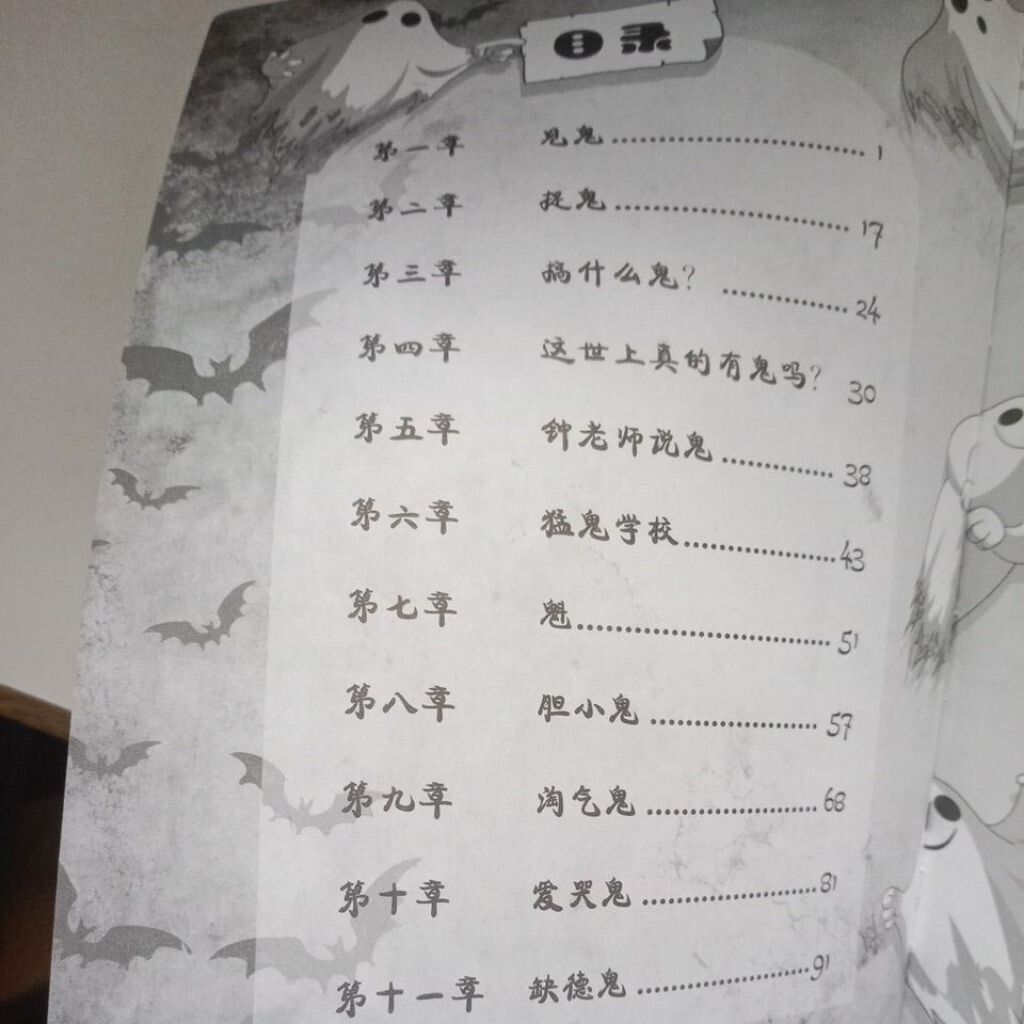 目录
第一章 见鬼……………………1
第二章 捉鬼……………………17
第三章 搞什么鬼? ……………24
第四章 这世上真的有鬼吗? 30
第五章 钟老师说鬼……………38
第六章 猛鬼学校………………43
第七章 魁………………………51
第八章 胆小鬼…………………57
第九章 淘气鬼…………………68
第十章 爱哭鬼…………………81
第十一章 缺德鬼………………91